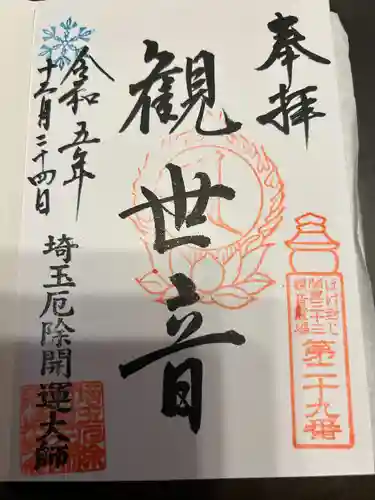 奉拝
第二十九番
観世音
令和五年
十二月二十四日
埼玉厄除開運大師